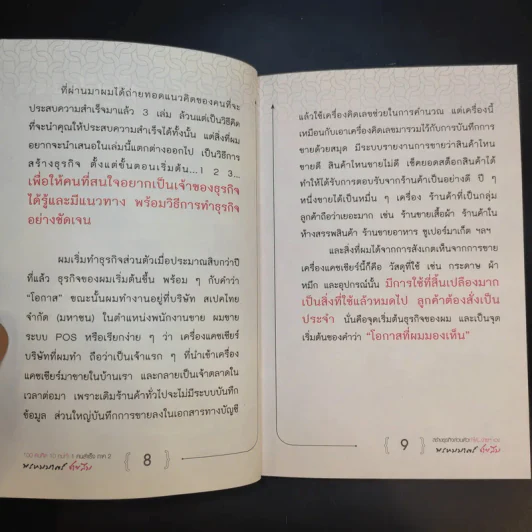 ที่ผ่านมาผมได้ถ่ายทอดแนวคิดของคนที่จะ
ประสบความสำเร็จมาแล้ว 3 เล่ม ล้วนแต่เป็นวิธีคิด
ที่จะนำคุณให้ประสบความสำเร็จได้ทั้งนั้น แต่สิ่งที่ผม
อยากจะนำเสนอในเล่มนี้แตกต่างออกไป เป็นวิธีการ
สร้างธุรกิจ ตั้งแต่ขั้นตอนเริ่มต้น...1 2 3...
เพื่อให้คนที่สนใจอยากเป็นเจ้าของธุรกิจ
ได้รู้และมีแนวทาง พร้อมวิธีการทำธุรกิจ
อย่างชัดเจน
ผมเริ่มทำธุรกิจส่วนตัวเมื่อประมาณสิบกว่าปี
ที่แล้ว ธุรกิจของผมเริ่มต้นขึ้น พร้อม ๆ กับคำว่า
“โอกาส” ขณะนั้นผมทำงานอยู่ที่บริษัท สเปคไทย
จำกัด (มหาชน) ในตำแหน่งพนักงานขาย ผมขาย
ระบบ POS หรือเรียกง่าย ๆ ว่า เครื่องแคชเชียร์
บริษัทที่ผมทำ ถือว่าเป็นเจ้าแรก ๆ ที่นำเข้าเครื่อง
แคชเชียร์มาขายในบ้านเรา และกลายเป็นเจ้าตลาดใน
เวลาต่อมา เพราะเดิมร้านค้าทั่วไปจะไม่มีระบบบันทึก
ข้อมูล ส่วนใหญ่บันทึกการขายลงในเอกสารทางบัญชี
8
แล้วใช้เครื่องคิดเลขช่วยในการคำนวณ แต่เครื่องนี้
เหมือนกับเอาเครื่องคิดเลขมารวมไว้กับการบันทึกการ
ขายด้วยสมุด มีระบบรายงานการขายว่าสินค้าไหน
ขายดี สินค้าไหนขายไม่ดี เช็คยอดสต็อกสินค้าได้
ทำให้ได้รับการตอบรับจากร้านค้าเป็นอย่างดี ปี ๆ
หนึ่งขายได้เป็นหมื่น ๆ เครื่อง ร้านค้าที่เป็นกลุ่ม
ลูกค้าถือว่าเยอะมาก เช่น ร้านขายเสื้อผ้า ร้านค้าใน
ห้างสรรพสินค้า ร้านขายอาหาร ซูเปอร์มาเก็ต ฯลฯ
และสิ่งที่ผมได้จากการสังเกตเห็นจากการขาย
เครื่องแคชเชียร์นี้ก็คือ วัสดุที่ใช้ เช่น กระดาษ ผ้า
หมึก และอุปกรณ์นั้น มีการใช้ที่สิ้นเปลืองมาก
เป็นสิ่งที่ใช้แล้วหมดไป ลูกค้าต้องสั่งเป็น
ประจำ นั่นคือจุดเริ่มต้นธุรกิจของผม และเป็นจุด
เริ่มต้นของคำว่า “โอกาสที่ผมมองเห็น”
9